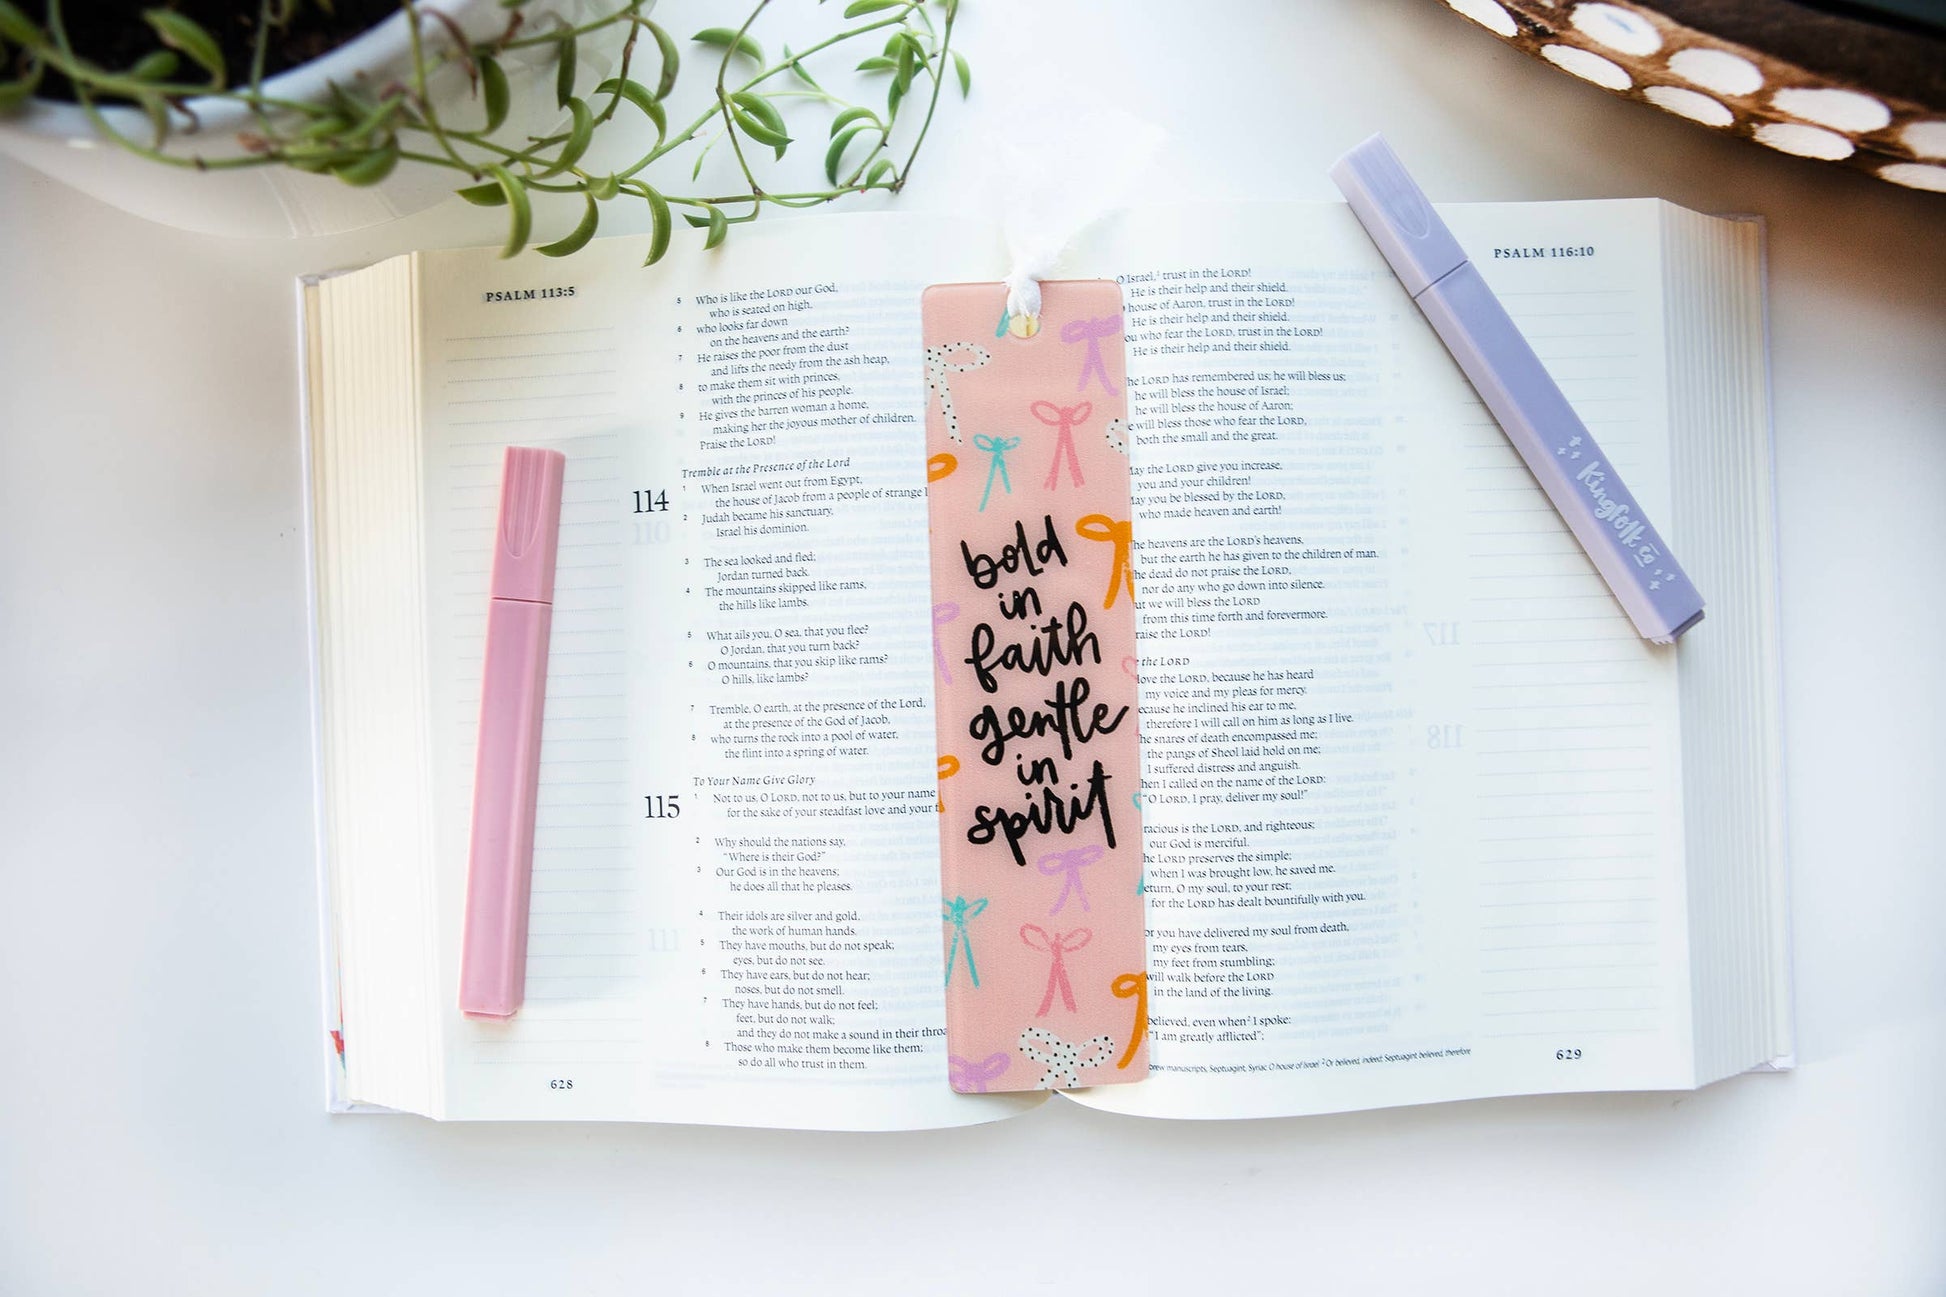 PSALM 113:5
5 Who is like the LORD our God,
who is seated on high,
6 who looks far down
on the heavens and the earth?
7 He raises the poor from the dust
and lifts the needy from the ash heap,
8 to make them sit with princes,
with the princes of his people.
9 He gives the barren woman a home,
making her the joyous mother of children.
Praise the LORD!
Tremble at the Presence of the Lord
114
1 When Israel went out from Egypt,
the house of Jacob from a people of strange
2 Judah became his sanctuary,
Israel his dominion.
3 The sea looked and fled;
Jordan turned back.
4 The mountains skipped like rams,
the hills like lambs.
5 What ails you, O sea, that you flee?
O Jordan, that you turn back?
6 O mountains, that you skip like rams?
O hills, like lambs?
7 Tremble, O earth, at the presence of the Lord,
at the presence of the God of Jacob,
8 who turns the rock into a pool of water,
the flint into a spring of water.
To Your Name Give Glory
115
1 Not to us, O LORD, not to us, but to your name
for the sake of your steadfast love and your
2 Why should the nations say,
"Where is their God?"
3 Our God is in the heavens;
he does all that he pleases.
4 Their idols are silver and gold,
the work of human hands.
5 They have mouths, but do not speak;
eyes, but do not see.
6 They have ears, but do not hear;
noses, but do not smell.
7 They have hands, but do not feel;
feet, but do not walk;
and they do not make a sound in their
8 Those who make them become like them;
so do all who trust in them.
628
bold
in
faith
gentle
in
spirit
PSALM 116:10
O Israel,¹ trust in the LORD!
He is their help and their shield.
house of Aaron, trust in the LORD!
He is their help and their shield.
who fear the LORD, trust in the LORD!
He is their help and their shield.
LORD has remembered us; he will bless us;
he will bless the house of Israel;
he will bless the house of Aaron;
will bless those who fear the LORD,
both the small and the great.
the LORD give you increase,
you and your children!
you be blessed by the LORD,
who made heaven and earth!
heavens are the LORD's heavens,
but the earth he has given to the children of man.
dead do not praise the LORD,
nor do any who go down into silence.
we will bless the LORD
from this time forth and forevermore.
the LORD!
the LORD
love the LORD, because he has heard
my voice and my pleas for mercy.
he inclined his ear to me,
therefore I will call on him as long as I live.
snares of death encompassed me;
the pangs of Sheol laid hold on me;
I suffered distress and anguish.
I called on the name of the LORD:
"O LORD, I pray, deliver my soul!"
is the LORD, and righteous;
our God is merciful.
LORD preserves the simple;
when I was brought low, he saved me.
O my soul, to your rest;
for the LORD has dealt bountifully with you.
you have delivered my soul from death,
my eyes from tears,
my feet from stumbling;
will walk before the LORD
in the land of the living.
believed, even when² I spoke:
"I am greatly afflicted";
manuscripts, Septuagint, Syriac O house of Israel ² Or believed, indeed; Septuagint believed, therefore
629
Kingfolk co